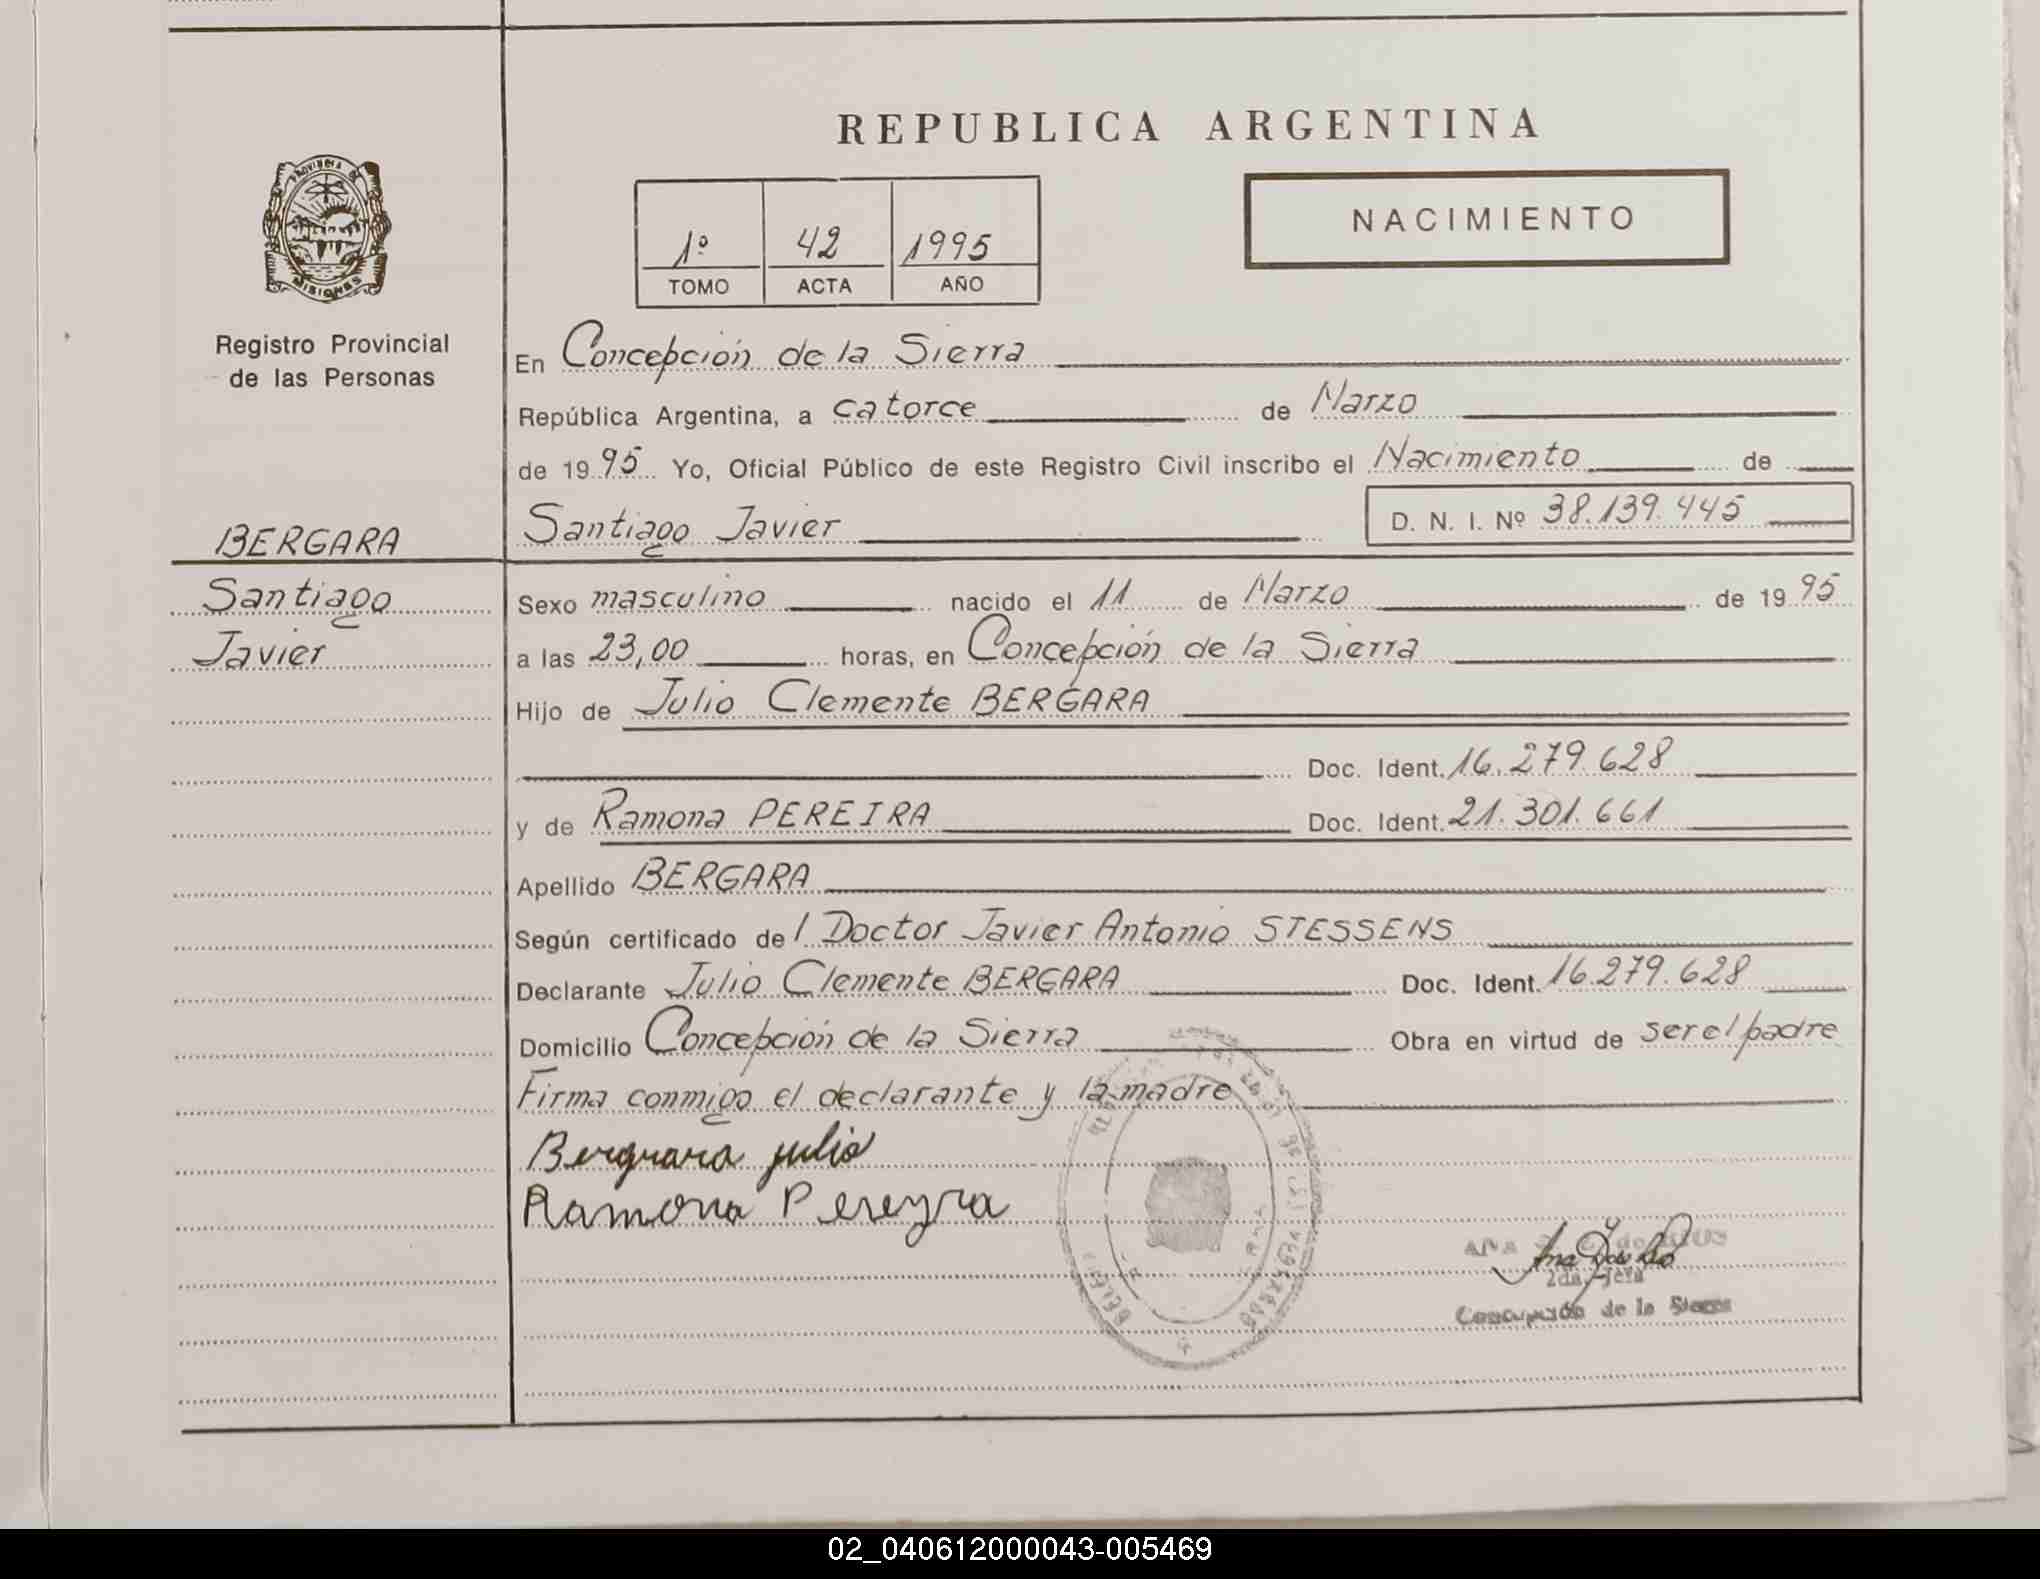 REPUBLICA ARGENTINA
PROVINCIA DE
MISIONES
NACIMIENTO
1º 42 1995
TOMO ACTA AÑO
Registro Provincial
de las Personas
En Concepción de la Sierra
República Argentina, a catorce de Marzo
de 1995 Yo, Oficial Público de este Registro Civil inscribo el Nacimiento de
BERGARA
Santiago Javier D. N. I. Nº 38.139.445
Santiago
Javier
Sexo masculino nacido el 11 de Marzo de 1995
a las 23,00 horas, en Concepción de la Sierra
Hijo de Julio Clemente BERGARA
Doc. Ident. 16.279.628
y de Ramona PEREIRA Doc. Ident. 21.301.661
Apellido BERGARA
Según certificado del Doctor Javier Antonio STESSENS
Declarante Julio Clemente BERGARA Doc. Ident. 16.279.628
Domicilio Concepción de la Sierra Obra en virtud de ser el padre
Firma conmigo el declarante y la madre
Bergrara julio
Ramona Pereyra
2da. Jefa
de la Sierra
02_040612000043-005469